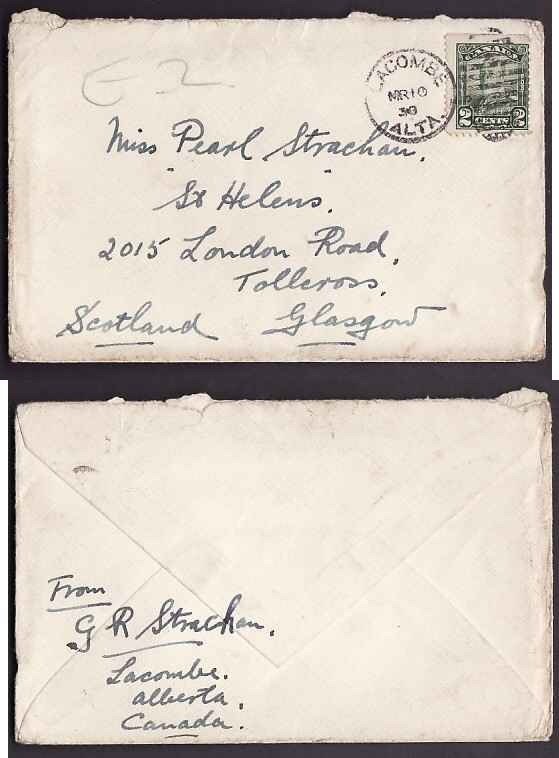 E 2
LACOMBE
MR 10
30
ALTA.
CANADA
2 CENTS 2
Miss Pearl Strachan,
"St Helens".
2015 London Road,
Tollcross,
Scotland Glasgow
From
G R Strachan,
Lacombe.
Alberta,
Canada.